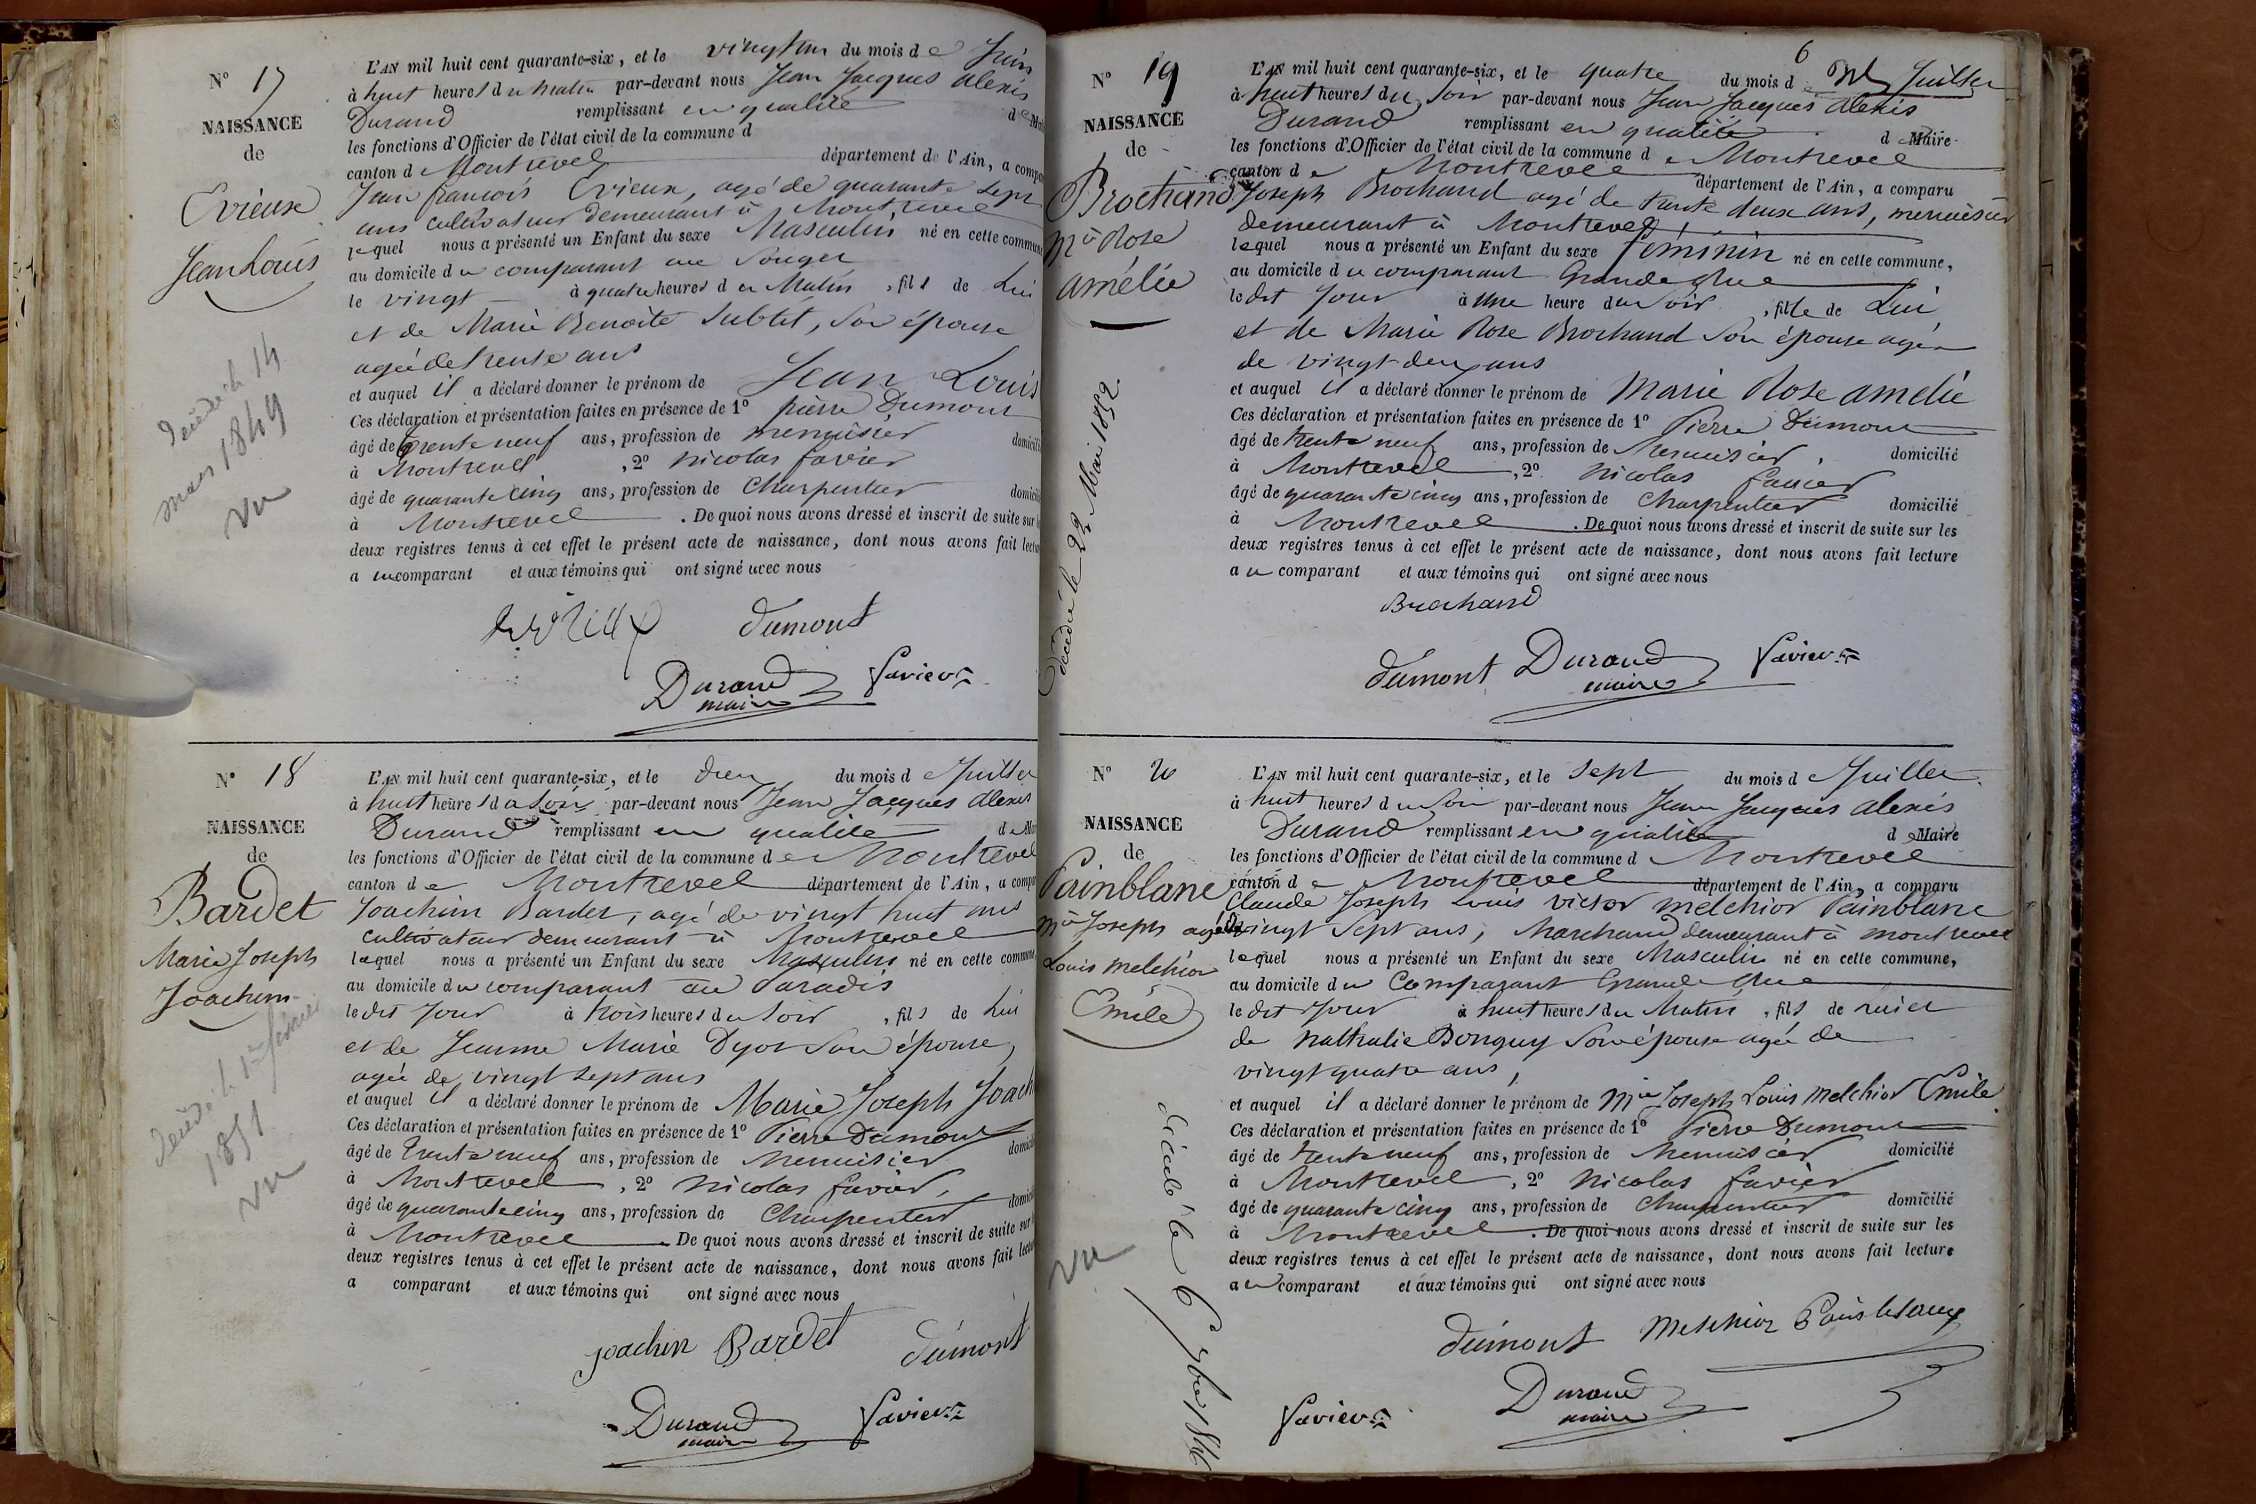 N° 17
NAISSANCE
de
Evieux
Jean Louis
décédé le 14
mars 1849
vu
L'AN mil huit cent quarante-six, et le vingt un du mois de Juin
à huit heures du matin par-devant nous Jean Jacques Alexis
Durand remplissant en qualité de
les fonctions d'Officier de l'état civil de la commune d
canton d Montrevel département de l'Ain, a compa
Jean francois Evieux, agé de quarante sept
ans cultivateur demeurant à Montrevel
lequel nous a présenté un Enfant du sexe Masculin né en cette commune
au domicile du comparant au Souget
le vingt à quatre heures du Matin, fils de Lui
et de Marie Benoite Subtit, Son épouse
agée de trente ans
et auquel il a déclaré donner le prénom de Jean Louis
Ces déclaration et présentation faites en présence de 1° pierre Dumont
âgé de trente neuf ans, profession de menuisier domicilié
à Montrevel, 2° nicolas favier
âgé de quarante cinq ans, profession de Charpentier domicilié
à Montrevel. De quoi nous avons dressé et inscrit de suite sur
deux registres tenus à cet effet le présent acte de naissance, dont nous avons fait lectu
au comparant et aux témoins qui ont signé avec nous
dumont
Durand
maire
favier
N° 18
NAISSANCE
de
Bardet
Marie Joseph
Joachim
décédé le 1er
1851
vu
L'AN mil huit cent quarante-six, et le deux du mois de Juillet
à huit heures du Soir par-devant nous Jean Jacques Alexis
Durand remplissant en qualité de
les fonctions d'Officier de l'état civil de la commune de Montrevel
canton de Montrevel département de l'Ain, a compa
Joachim Bardet, agé de vingt huit ans
cultivateur demeurant à Montrevel
lequel nous a présenté un Enfant du sexe Masculin né en cette commune
au domicile du comparant au Paradis
le dit Jour à trois heures du Soir, fils de Lui
et de Jeanne Marie Dyot Son épouse,
agée de vingt sept ans
et auquel il a déclaré donner le prénom de Marie Joseph Joach
Ces déclaration et présentation faites en présence de 1° Pierre Dumont
âgé de trente neuf ans, profession de Menuisier domicilié
à Montrevel, 2° Nicolas favier,
âgé de quarante cinq ans, profession de Charpentier domicilié
à Montrevel. De quoi nous avons dressé et inscrit de suite sur
deux registres tenus à cet effet le présent acte de naissance, dont nous avons fait lectu
a comparant et aux témoins qui ont signé avec nous
joachin Bardet dumont
Durand
maire
favier
6
N° 19
NAISSANCE
de
Brochand
Mie Rose
amélie
décédée le 22 Mai 1852
L'AN mil huit cent quarante-six, et le quatre du mois de Juillet
à huit heures du Soir par-devant nous Jean Jacques Alexis
Durand remplissant en qualité de Maire
les fonctions d'Officier de l'état civil de la commune de Montrevel
canton de Montrevel département de l'Ain, a comparu
Joseph Brochand agé de trente deux ans, menuisier
demeurant à Montrevel
lequel nous a présenté un Enfant du sexe féminin né en cette commune,
au domicile du comparant Grande Rue
le dit Jour à Une heure du Soir, fille de Lui
et de Marie Rose Brochand Son épouse agée
de vingt deux ans
et auquel il a déclaré donner le prénom de Marie Rose amélie
Ces déclaration et présentation faites en présence de 1° Pierre Dumont
âgé de trente neuf ans, profession de Menuisier, domicilié
à Montrevel, 2° Nicolas favier
âgé de quarante cinq ans, profession de Charpentier domicilié
à Montrevel. De quoi nous avons dressé et inscrit de suite sur les
deux registres tenus à cet effet le présent acte de naissance, dont nous avons fait lecture
au comparant et aux témoins qui ont signé avec nous
Brochand
dumont Durand favier
maire
N° 20
NAISSANCE
de
Painblanc
Mie Joseph
Louis Melchior
Emile
décédé le 6 7bre 1846
vu
L'AN mil huit cent quarante-six, et le Sept du mois de Juillet
à huit heures du Soir par-devant nous Jean Jacques Alexis
Durand remplissant en qualité de Maire
les fonctions d'Officier de l'état civil de la commune d Montrevel
canton de Montrevel département de l'Ain, a comparu
Claude Joseph Louis Victor Melchior Painblanc
agé de vingt Sept ans, Marchand demeurant à Montrevel
lequel nous a présenté un Enfant du sexe Masculin né en cette commune,
au domicile du Comparant Grande Rue
le dit Jour à huit heures du Matin, fils de lui et
de Nathalie Bonguy Son épouse agée de
vingt quatre ans,
et auquel il a déclaré donner le prénom de Mie Joseph Louis Melchior Emile
Ces déclaration et présentation faites en présence de 1° Pierre Dumont
âgé de trente neuf ans, profession de Menuisier domicilié
à Montrevel, 2° Nicolas favier
âgé de quarante cinq ans, profession de Charpentier domicilié
à Montrevel. De quoi nous avons dressé et inscrit de suite sur les
deux registres tenus à cet effet le présent acte de naissance, dont nous avons fait lecture
au comparant et aux témoins qui ont signé avec nous
dumont Melchior Painblanc
favier Durand
maire